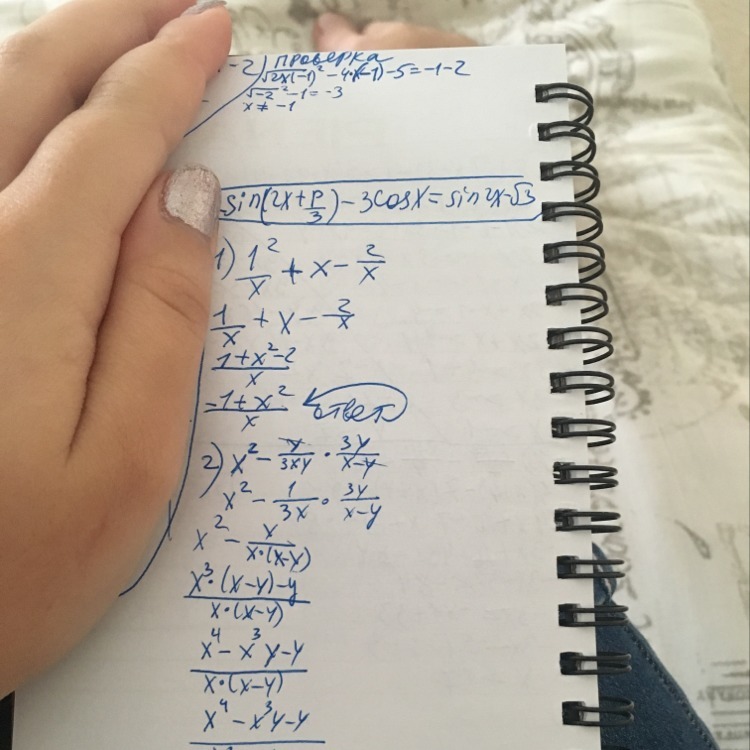 -2) Проверка
√2x(-1)² - 4·(-1) - 5 = -1-2
√-2² -1 = -3
x ≠ -1
sin(2x+p/3) - 3cosx = sin2x-√3
1) 1²/x + x - 2/x
1/x + x - 2/x
1+x²-2/x
-1+x²/x ответ
2) x² - y/3xy · 3y/x-y
x² - 1/3x · 3y/x-y
x² - x/x·(x-y)
x³·(x-y)-y/x·(x-y)
x⁴ - x³y-y/x·(x-y)
x⁴ - x³y-y